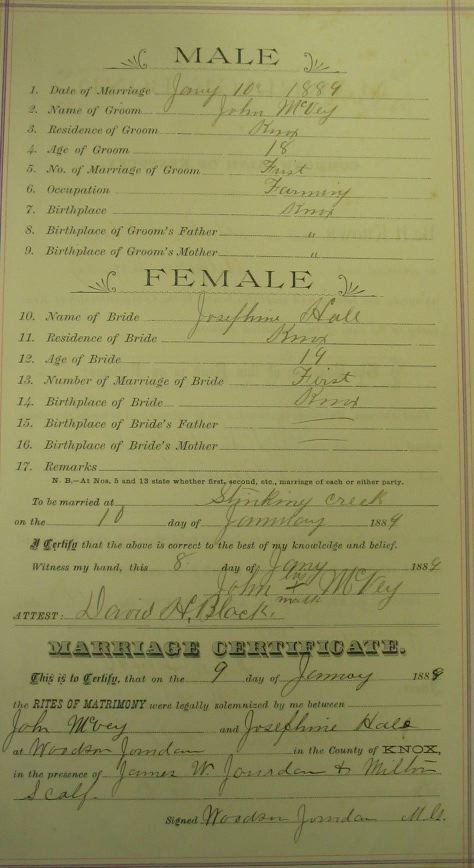 MALE
1. Date of Marriage Jany 10th 1889
2. Name of Groom John McVey
3. Residence of Groom Knox
4. Age of Groom 18
5. No. of Marriage of Groom First
6. Occupation Farming
7. Birthplace Knox
8. Birthplace of Groom's Father "
9. Birthplace of Groom's Mother "
FEMALE
10. Name of Bride Josephine Hale
11. Residence of Bride Knox
12. Age of Bride 19
13. Number of Marriage of Bride First
14. Birthplace of Bride Knox
15. Birthplace of Bride's Father —
16. Birthplace of Bride's Mother —
17. Remarks
N. B.—At Nos. 5 and 13 state whether first, second, etc., marriage of each or either party.
To be married at Stinking creek
on the 10 day of January 1889
I Certify that the above is correct to the best of my knowledge and belief.
Witness my hand, this 8 day of Jany 1889
John his + mark McVey
ATTEST: David H. Black.
MARRIAGE CERTIFICATE.
This is to Certify, that on the 9 day of Jenuay 1889
the RITES OF MATRIMONY were legally solemnized by me between
John McVey and Josephine Hale
at Woodson Jourdan in the County of KNOX,
in the presence of James W. Jourdan & Milton
Scalf.
Signed Woodson Jourdan M.G.